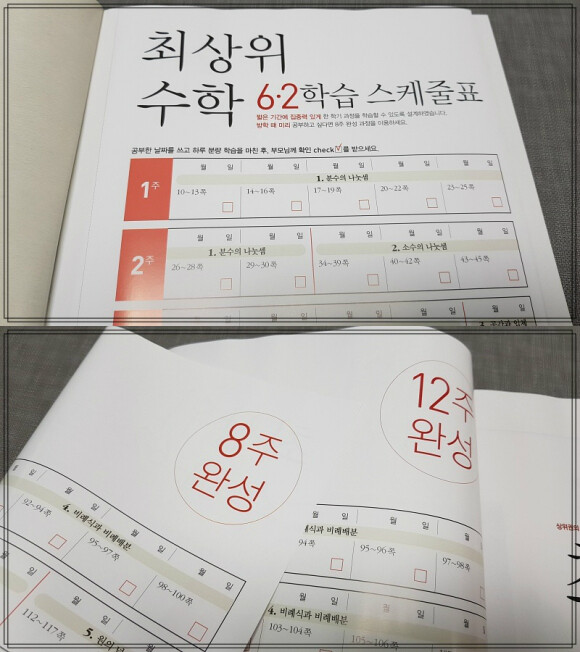 최상위
수학 6·2 학습 스케줄표
짧은 기간에 집중력 있게 한 학기 과정을 학습할 수 있도록 설계하였습니다.
방학 때 미리 공부하고 싶다면 8주 완성 과정을 이용하세요.
공부한 날짜를 쓰고 하루 분량 학습을 마친 후, 부모님께 확인 check를 받으세요.
월 일 월 일 월 일 월 일 월 일
1주
1. 분수의 나눗셈
10~13쪽 14~16쪽 17~19쪽 20~22쪽 23~25쪽
월 일 월 일 월 일 월 일 월 일
2주
1. 분수의 나눗셈 2. 소수의 나눗셈
26~28쪽 29~30쪽 34~39쪽 40~42쪽 43~45쪽
월 일 월 일 월 일 월 일 월 일
8주
완성
일 월 일 월 일 월 일
4. 비례식과 비례배분
92~94쪽 95~97쪽 98~100쪽
월 일 월 일
112~117쪽
5. 원의
12주
완성
월 일 월 일
식과 비례배분
94쪽 95~96쪽 97~98쪽
월 일 월 일 월
4. 비례식과 비례배분
103~104쪽 105~106쪽